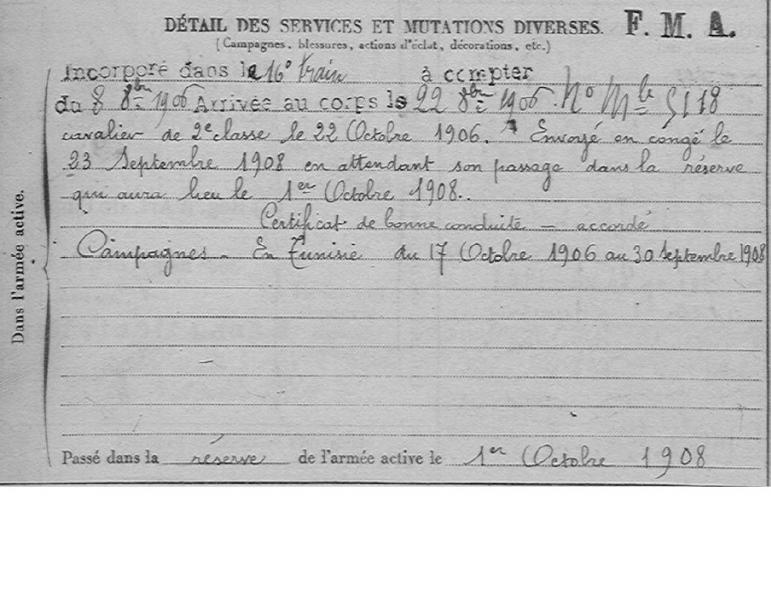 DÉTAIL DES SERVICES ET MUTATIONS DIVERSES. F. M. A.
(Campagnes, blessures, actions d'éclat, décorations, etc.)
Incorporé dans le 16e train à compter
du 8 8bre 1906 Arrivée au corps le 22 8bre 1906. No Mle 5118
cavalier de 2e classe le 22 Octobre 1906. Envoyé en congé le
23 Septembre 1908 en attendant son passage dans la réserve
qui aura lieu le 1er Octobre 1908.
Certificat de bonne conduite – accordé
Campagnes – En Tunisie du 17 Octobre 1906 au 30 Septembre 1908
Dans l'armée active.
Passé dans la réserve de l'armée active le 1er Octobre 1908